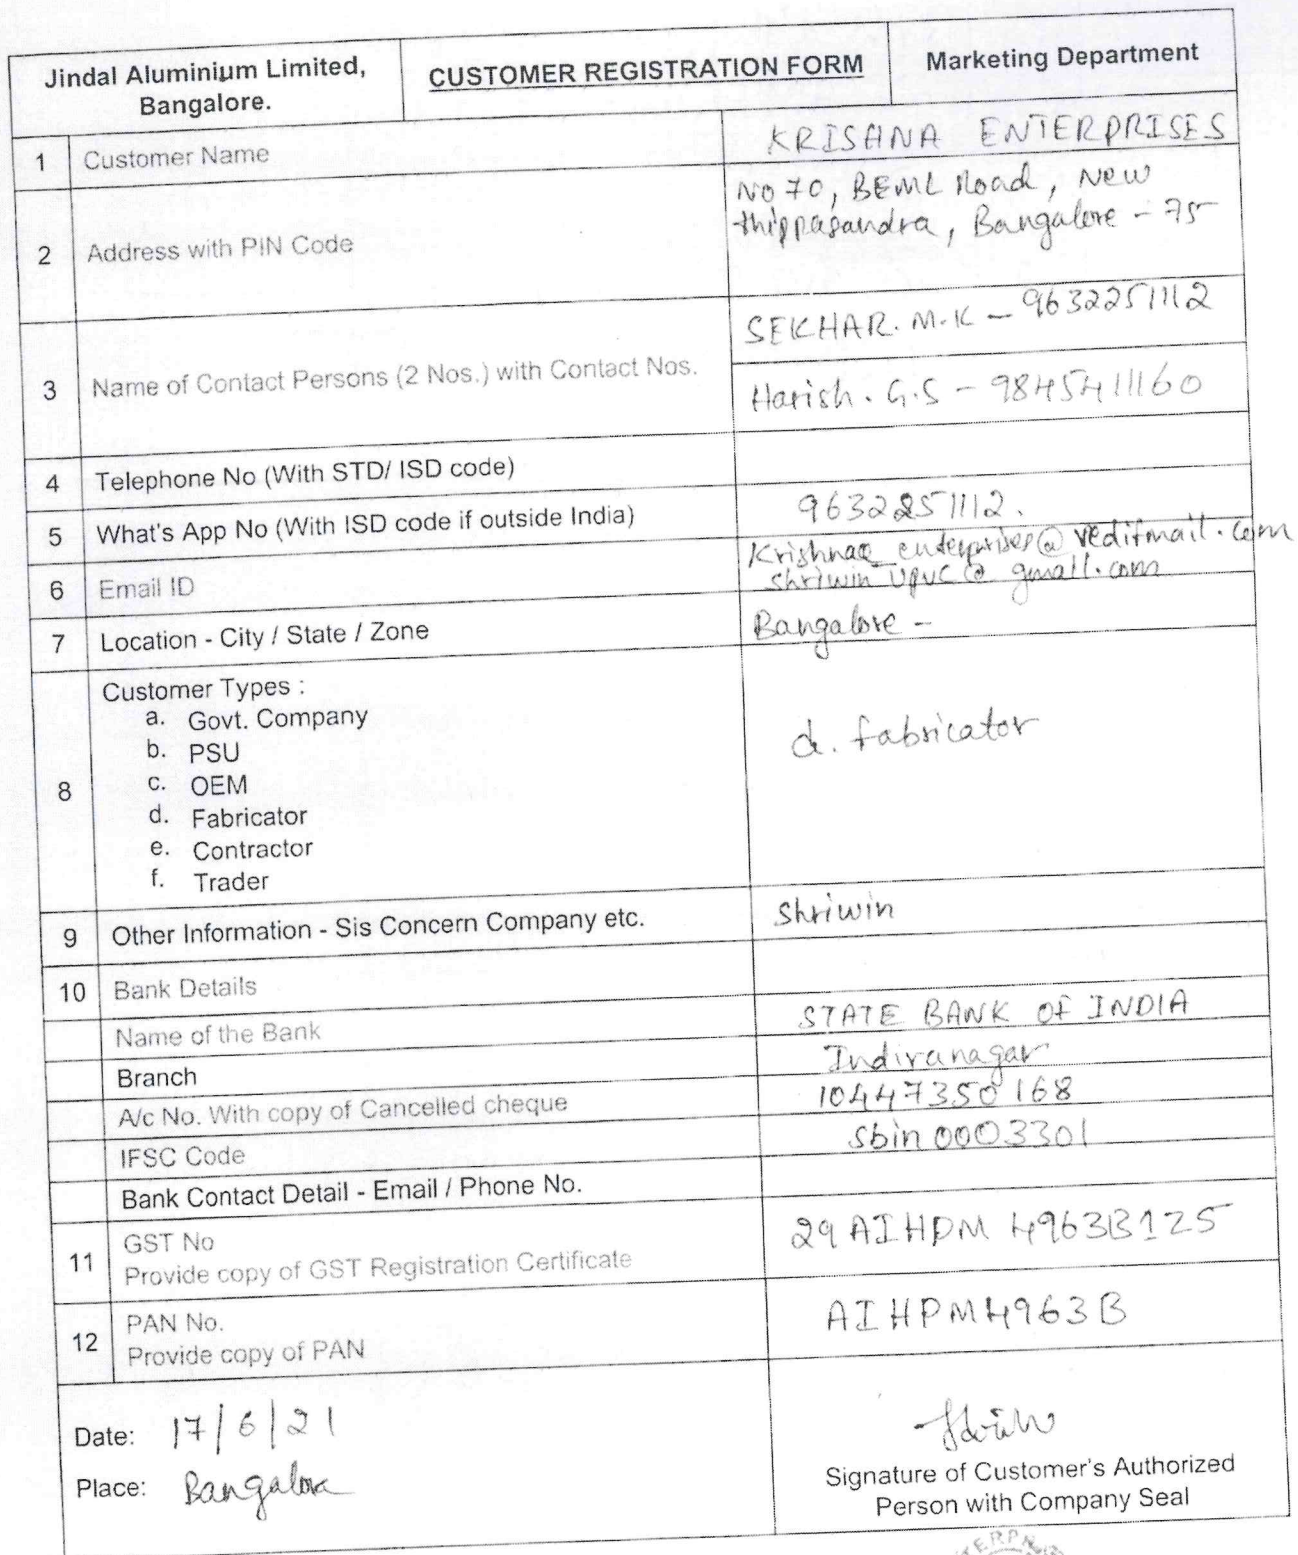 Jindal Aluminium Limited,
Bangalore.
CUSTOMER REGISTRATION FORM
Marketing Department
1 Customer Name KRISHNA ENTERPRISES
2 Address with PIN Code
No 70, BEML Road, New
thippasandra, Bangalore - 75
3 Name of Contact Persons (2 Nos.) with Contact Nos.
SEKHAR. M.K - 9632251112
Harish. G.S - 9845411160
4 Telephone No (With STD/ ISD code)
5 What's App No (With ISD code if outside India) 9632251112.
6 Email ID
Krishnae_enterprises@rediffmail.com
shriwin upvc@gmail.com
7 Location - City / State / Zone Bangalore -
8 Customer Types :
a. Govt. Company
b. PSU
c. OEM
d. Fabricator
e. Contractor
f. Trader
d. fabricator
9 Other Information - Sis Concern Company etc. Shriwin
10 Bank Details
Name of the Bank STATE BANK OF INDIA
Branch Indiranagar
A/c No. With copy of Cancelled cheque 10447350168
IFSC Code sbin0003301
Bank Contact Detail - Email / Phone No.
11 GST No
Provide copy of GST Registration Certificate
29 AIHPM 4963B1Z5
12 PAN No.
Provide copy of PAN
AIHPM4963B
Date: 17/6/21
Place: Bangalore
Signature of Customer's Authorized
Person with Company Seal